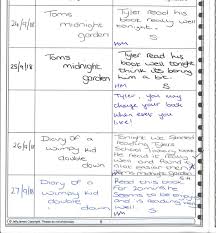 24/9/18
Toms
midnight
garden
Tyler read his
book really well
tonight.
S
HM
25/9/18
Toms
midnight
garden
Tyler read his
book well tonight
think its boring
him a bit.
S
HM
Tyler, you may
change your book
when ever you
like!
26/9/18
Diary of a
wimpy kid
double
down
Tonight we started
reading Tylers
School library book
He read it really
well and found it
easier then
27/9/18
Diary of a
wimpy kid
double
down
Read this book
for 20mins
Seems to be enjoying
and is reading
well.
S